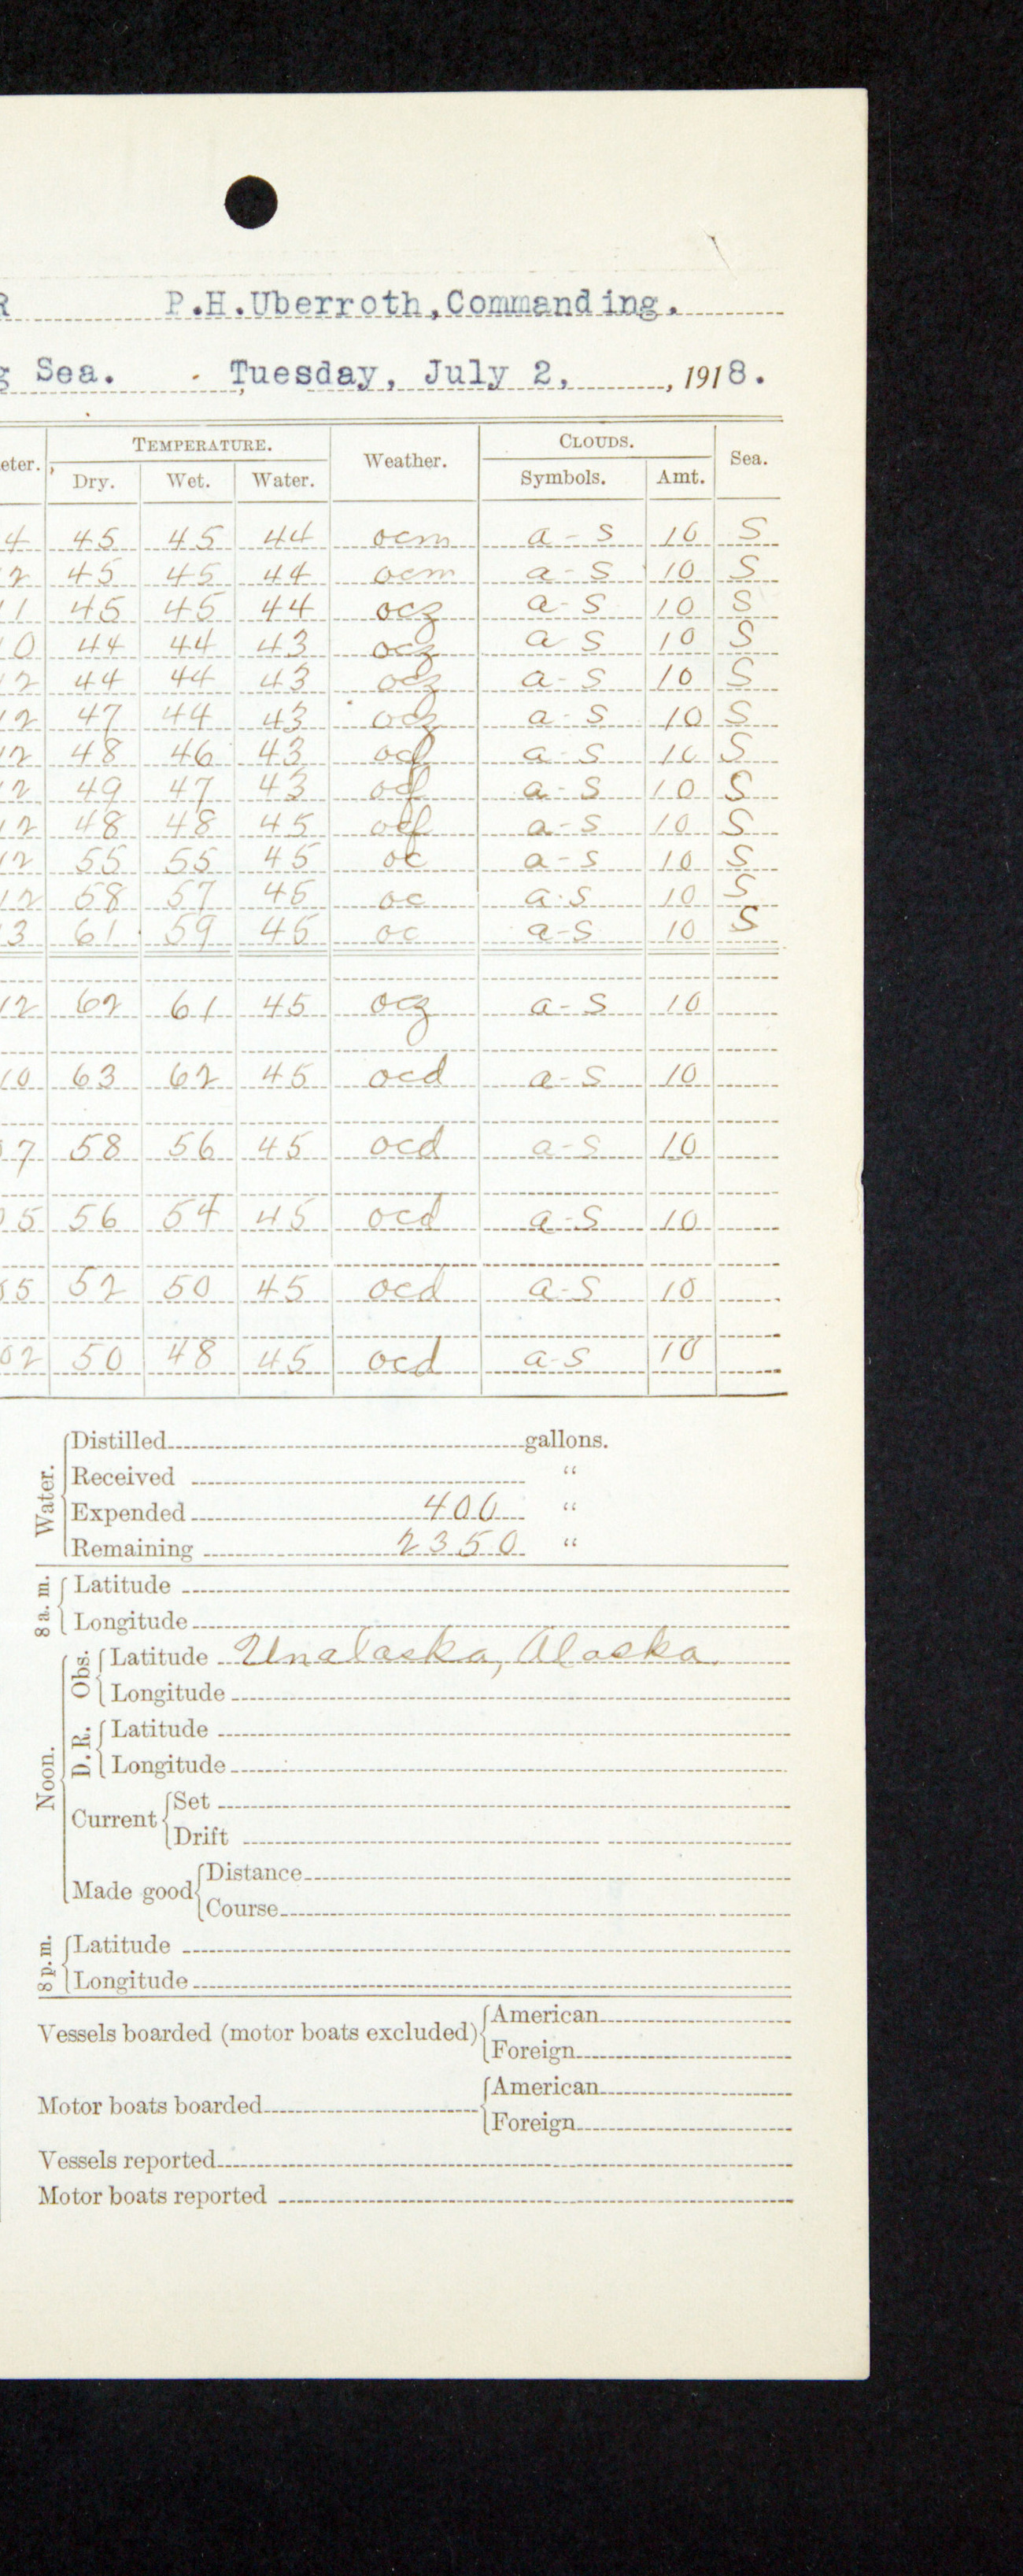 R P.H.Uberroth,Commanding.
g Sea. Tuesday, July 2, , 1918.
eter. TEMPERATURE. Weather. CLOUDS. Sea.
Dry. Wet. Water. Symbols. Amt.
4 45 45 44 ocm a-s 10 S
12 45 45 44 ocm a-s 10 S
11 45 45 44 ocz a-s 10 S
10 44 44 43 ocz a s 10 S
12 44 44 43 ocz a-s 10 S
12 47 44 43 ocz a-s 10 S
12 48 46 43 a-s 10 S
12 49 47 43 a-s 10 S
12 48 48 45 a-s 10 S
12 55 55 45 oc a-s 10 S
12 58 57 45 oc a-s 10 S
3 61 59 45 oc a-s 10 S
12 62 61 45 ocz a-s 10
10 63 62 45 ocd a-s 10
07 58 56 45 ocd a-s 10
05 56 54 45 ocd a-s 10
05 52 50 45 ocd a-s 10
02 50 48 45 ocd a-s 10
Water.
Distilled gallons.
Received "
Expended 400 "
Remaining 2350 "
8 a. m.
Latitude
Longitude
Noon.
Obs.
Latitude Unalaska, Alaska.
Longitude
D. R.
Latitude
Longitude
Current
Set
Drift
Made good
Distance
Course
8 p. m.
Latitude
Longitude
Vessels boarded (motor boats excluded)
American
Foreign
Motor boats boarded
American
Foreign
Vessels reported
Motor boats reported